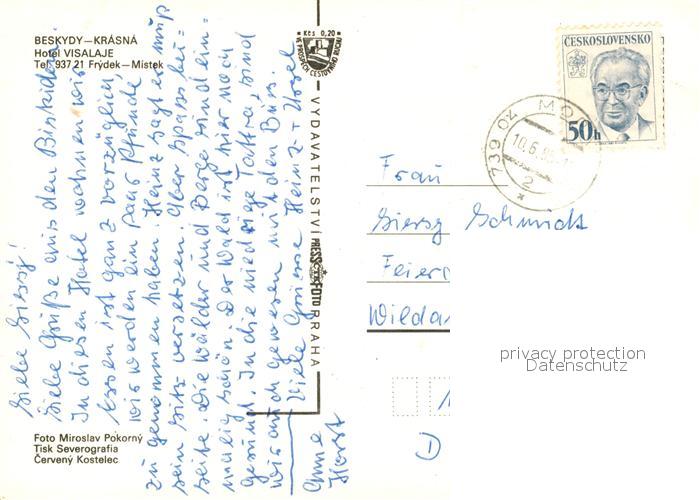 BESKYDY—KRÁSNÁ
Hotel VISALAJE
Tel. 937 21 Frýdek—Místek
Liebe Siessy!
Liebe Grüße aus den Biskiden.
In diesen Hotel wohnen wir
Essen ist ganz vorzüglich,
wir werden ein paar Pfunde
zu genommen haben. Heinz sagt er muß
sein Sitz versetzen. Aber Spass bei-
seite. Die Wälder und Berge sind ein-
malig schön. Der Wald ist hier noch
gesund. In die niedrige Tattra, sind
wir auch gewesen mit den Bus.
Viele Grüsse Heinz + Ursel
Anne
Horst
Foto Miroslav Pokorný
Tisk Severografia
Červený Kostelec
Kčs 0,20
VE PROSPĚCH CESTOVNÍHO RUCHU
VYDAVATELSTVÍ PRESSFOTO PRAHA
ČESKOSLOVENSKO
50h
739 04 MO
10.6.
2
Frau
Siessy Schmidt
Feier
Wilda
1
privacy protection
Datenschutz